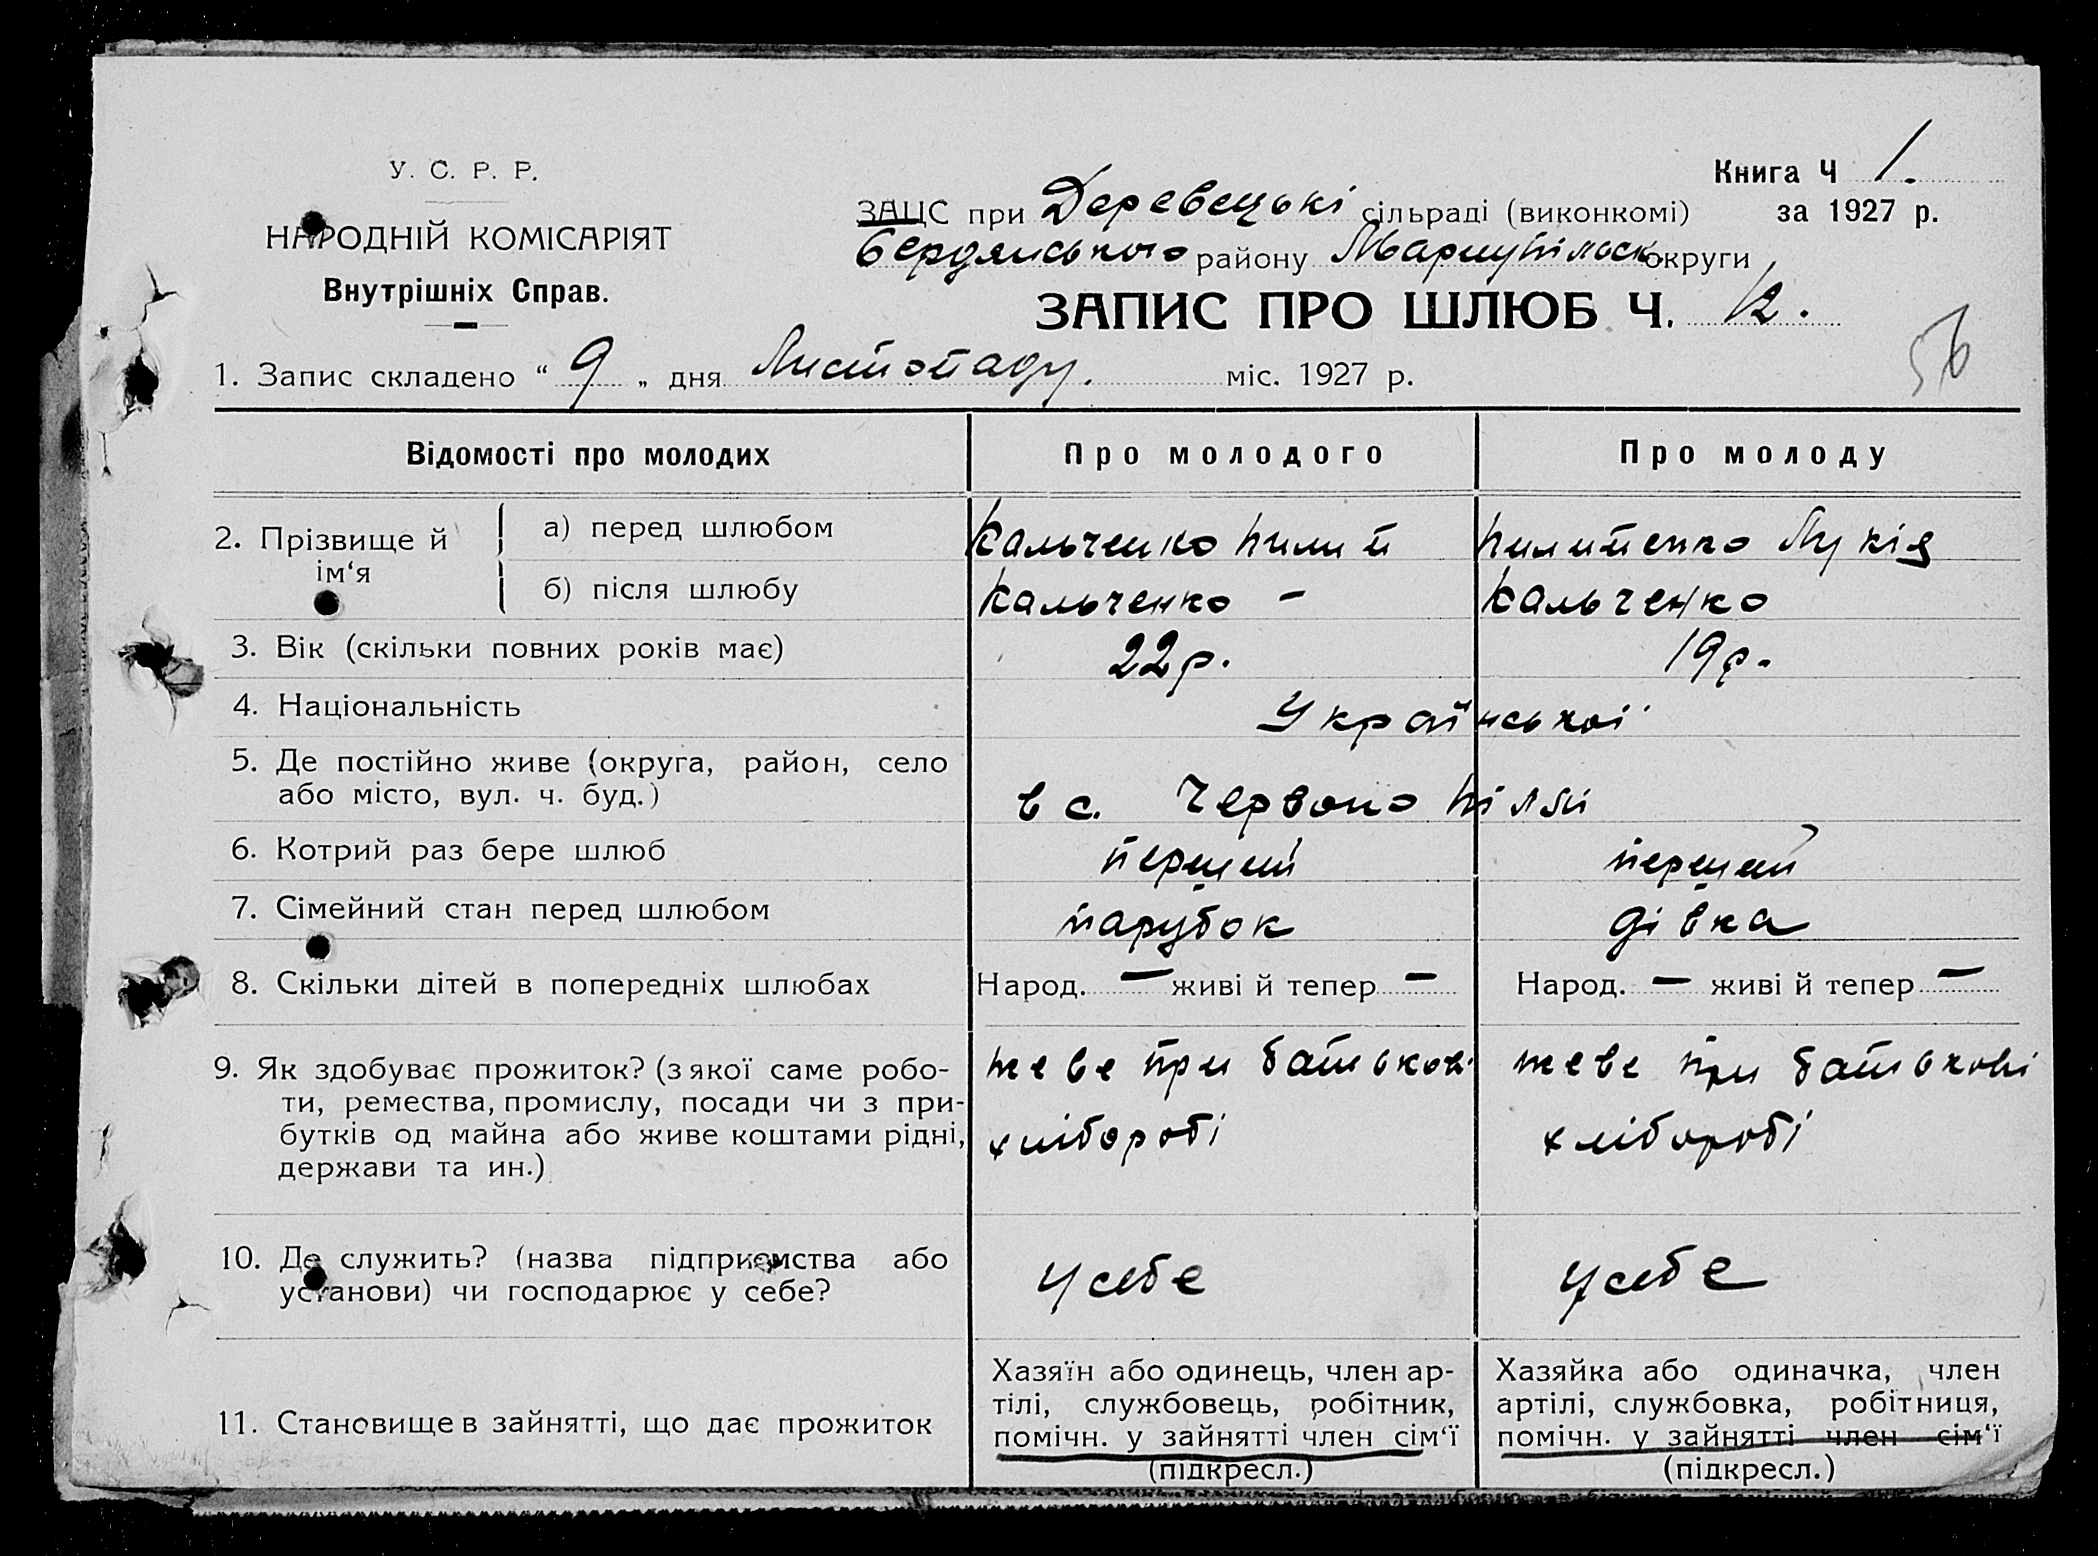 У. С. Р. Р.
НАРОДНІЙ КОМІСАРІЯТ
Внутрішніх Справ.
Книга Ч 1.
за 1927 р.
ЗАЦС при Деревецькі сільраді (виконкомі)
Бердянського району Маріупільськ округи
ЗАПИС ПРО ШЛЮБ Ч. 12.
56
1. Запис складено “ 9 „ дня Листопаду. міс. 1927 р.
Відомості про молодих
Про молодого
Про молоду
2. Прізвище й ім‘я
а) перед шлюбом
Кальченко Пилип
Пилипенко Лукія
б) після шлюбу
Кальченко –
Кальченко
3. Вік (скільки повних років має)
22 р.
19 р.
4. Національність
Української
5. Де постійно живе (округа, район, село
або місто, вул. ч. буд.)
в с. Червоно Піллі
6. Котрий раз бере шлюб
перший
перший
7. Сімейний стан перед шлюбом
парубок
дівка
8. Скільки дітей в попередніх шлюбах
Народ. — живі й тепер —
Народ. — живі й тепер —
9. Як здобуває прожиток? (з якої саме робо-
ти, ремества, промислу, посади чи з при-
бутків од майна або живе коштами рідні,
держави та ин.)
жеве при батькові
хліборобі
жеве при батькові
хліборобі
10. Де служить? (назва підприємства або
установи) чи господарює у себе?
у себе
у себе
11. Становище в зайнятті, що дає прожиток
Хазяїн або одинець, член ар-
тілі, службовець, робітник,
помічн. у зайнятті член сім‘ї
(підкресл.)
Хазяйка або одиначка, член
артілі, службовка, робітниця,
помічн. у зайнятті член сім‘ї
(підкресл.)